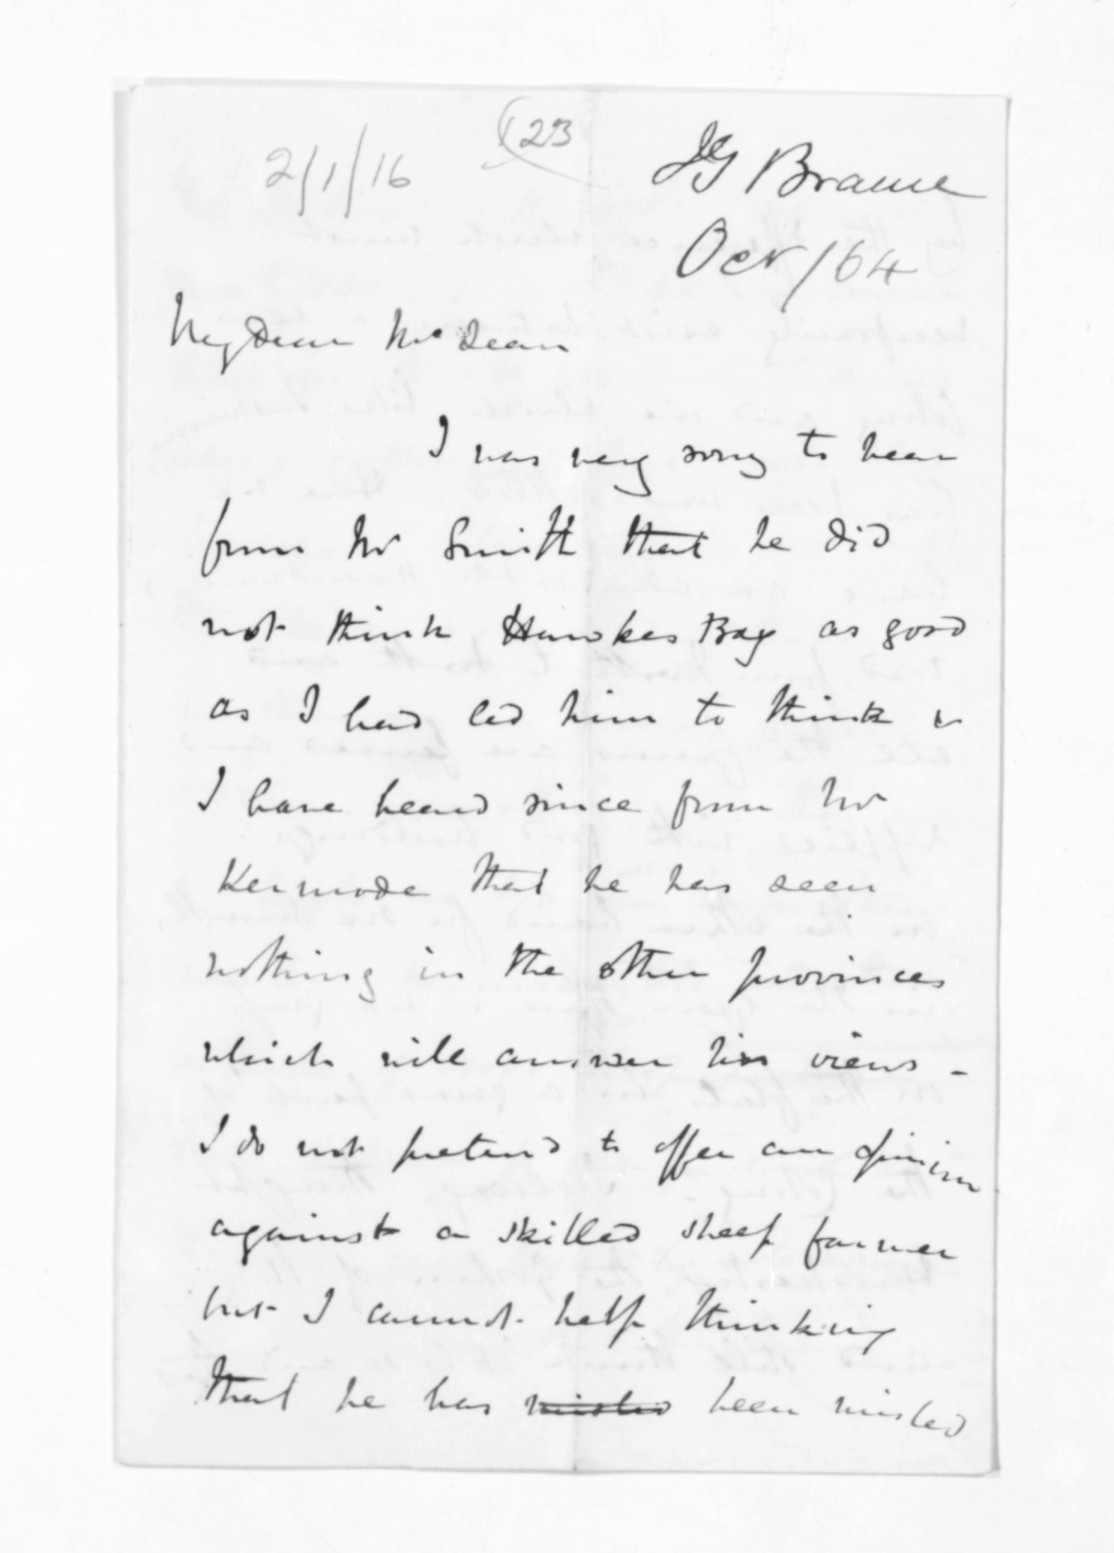 (23
2/1/16
JG Braeme
Oct/64
My Dear McLean
I was very sorry to hear
from Mr Smith that he did
not think Hawkes Bay as good
as I had led him to think &
I have heard since from Mr
Kermode that he has seen
nothing in the other provinces
which will answer his views -
I do not pretend to offer an opinion
against a skilled sheep farmer
but I cannot help thinking
that he has misled been misled